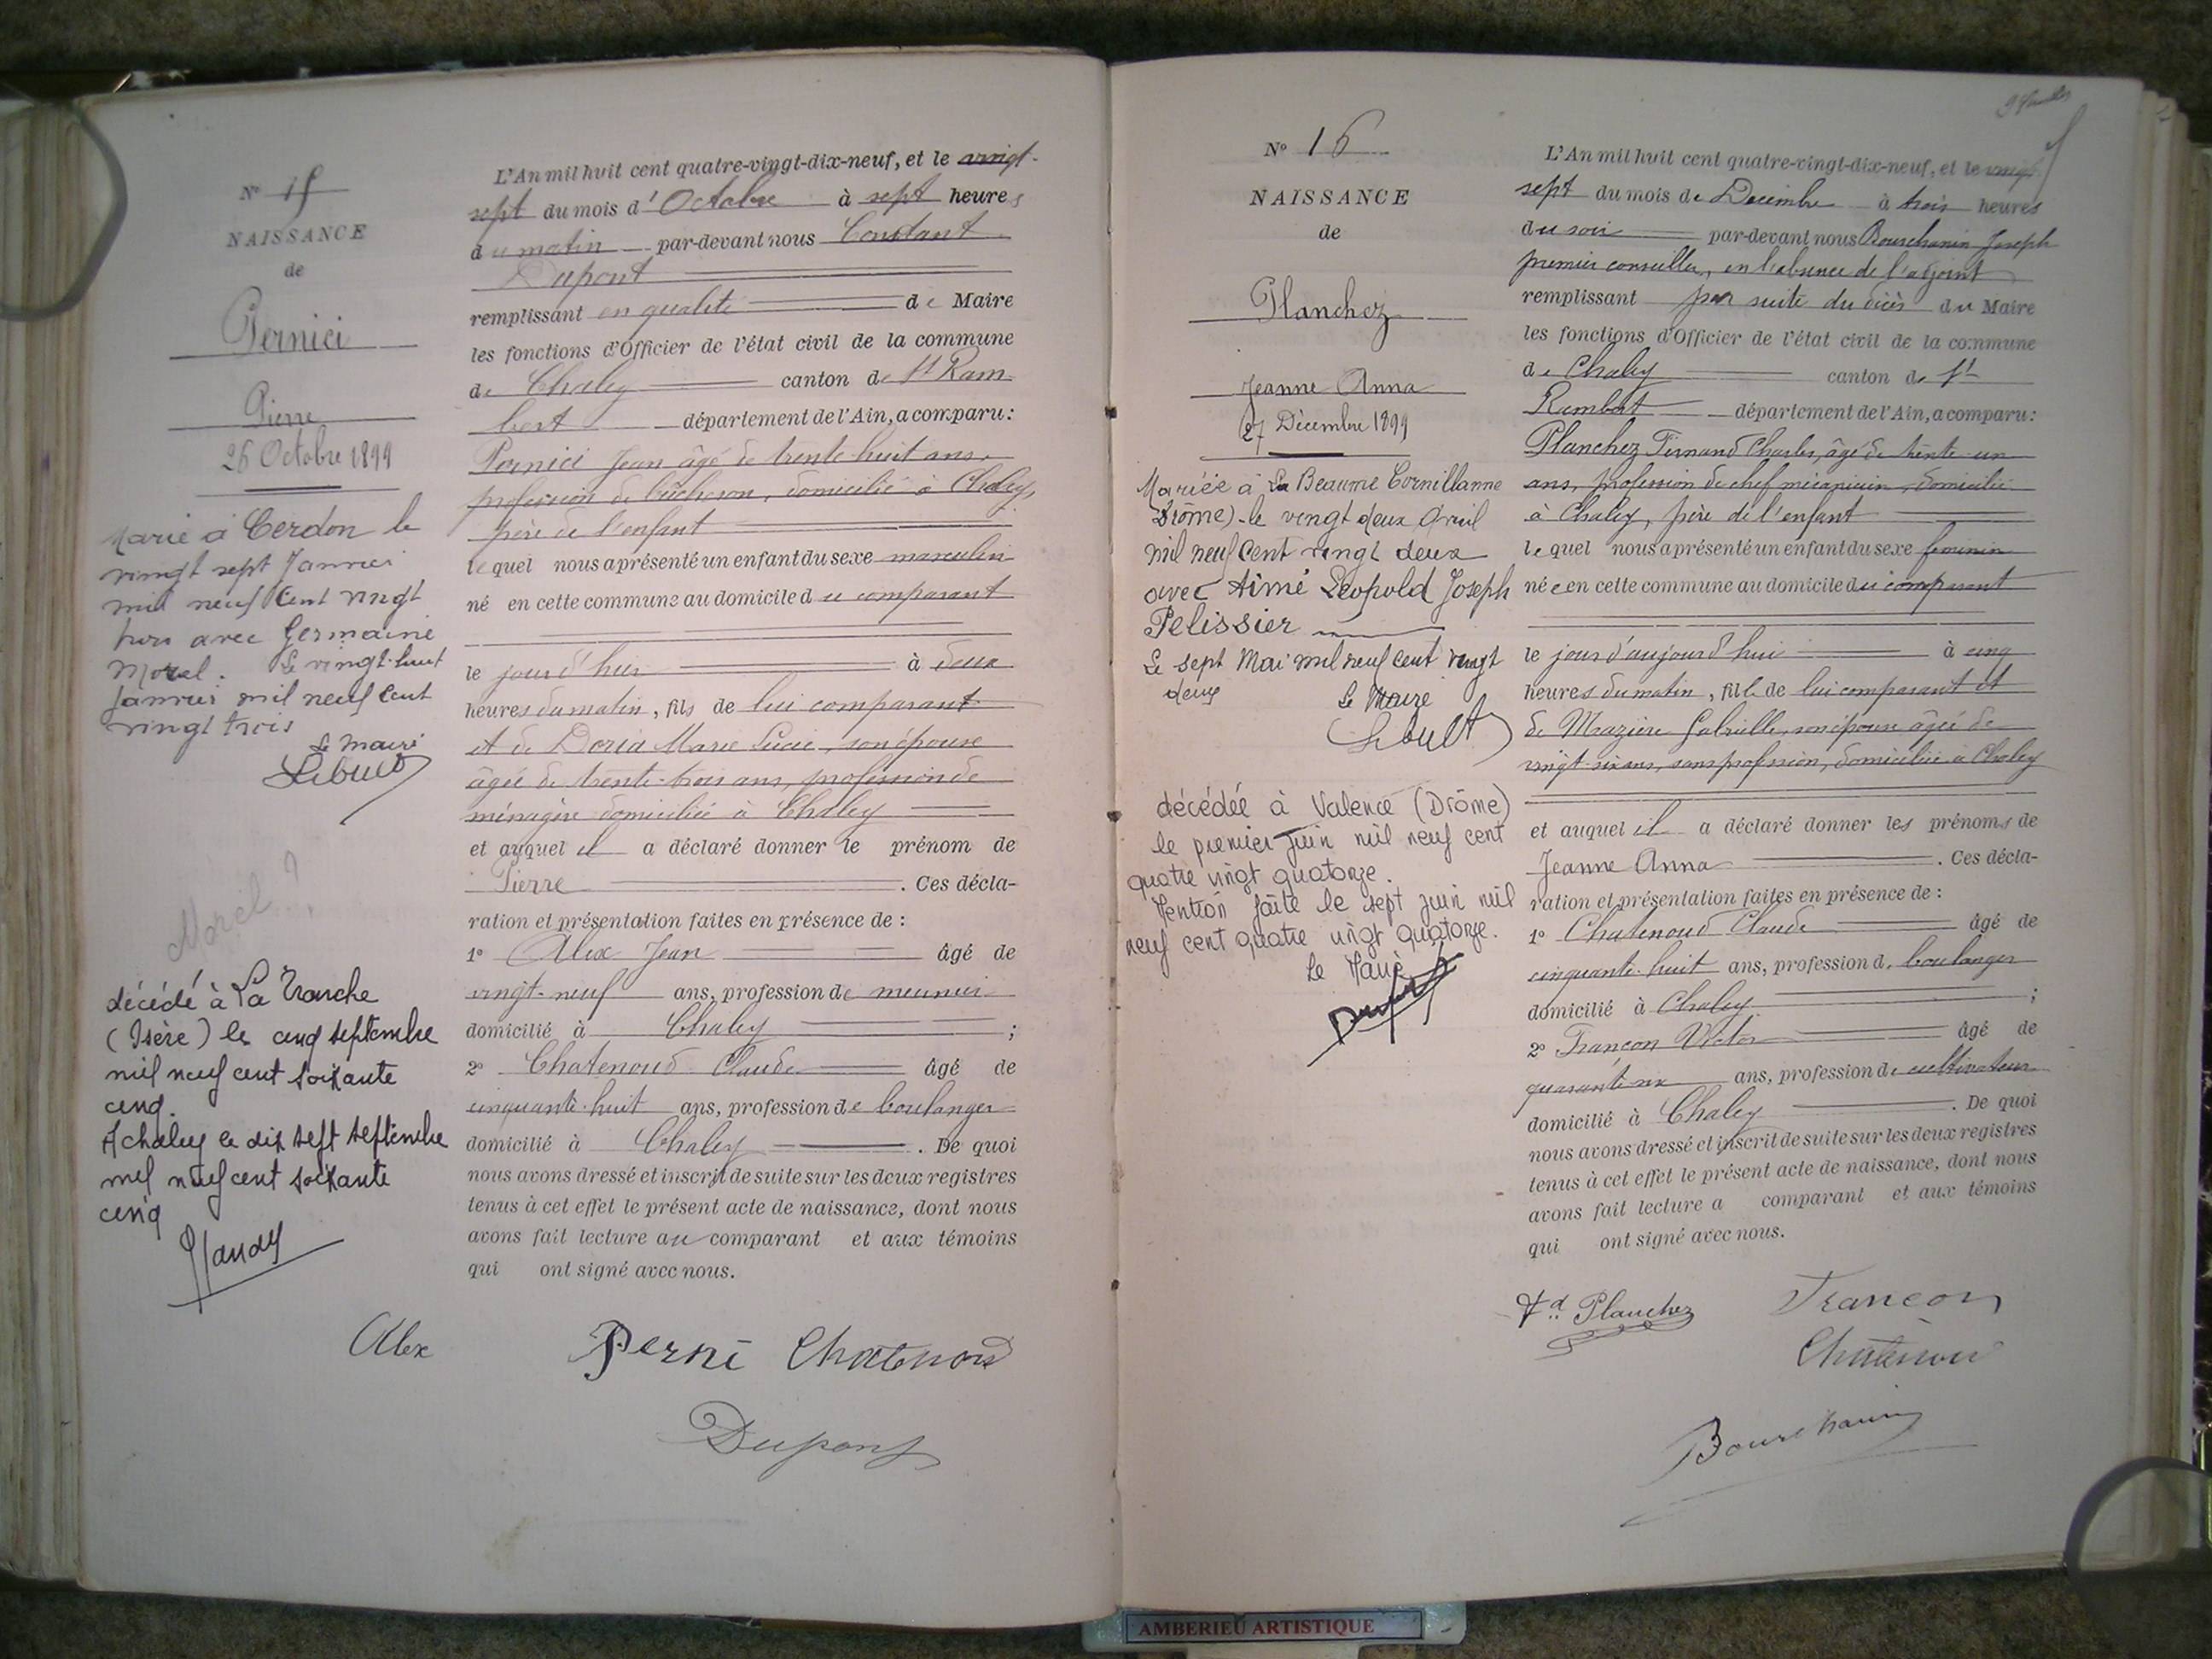 N° 15
NAISSANCE
de
Pernici
Pierre
26 Octobre 1899
Marié à Cerdon le
vingt sept Janvier
mil neuf Cent vingt
trois avec Germaine
Morel. Le vingt-huit
Janvier mil neuf Cent
vingt trois
Le Maire
Morel ?
décédé à La Tronche
(Isère) le cinq septembre
mil neuf cent soixante
cinq.
A chaley le dix sept septembre
mil neuf cent soixante
cinq
L'An mil huit cent quatre-vingt-dix-neuf, et le vingt-
sept du mois d'Octobre à sept heures
du matin par-devant nous Constant
Dupont
remplissant en qualité de Maire
les fonctions d'Officier de l'état civil de la commune
de Chaley canton de St Ram
bert département de l'Ain, a comparu :
Pernici Jean âgé de trente-huit ans,
profession de bûcheron, domicilié à Chaley,
père de l'enfant
lequel nous a présenté un enfant du sexe masculin
né en cette commune au domicile du comparant
le jour d'hier à deux
heures du matin, fils de lui comparant
et de Doria Marie Lucie, son épouse
âgée de trente-trois ans, profession de
ménagère domiciliée à Chaley
et auquel il a déclaré donner le prénom de
Pierre . Ces décla-
ration et présentation faites en présence de :
1° Alex Jean âgé de
vingt-neuf ans, profession de meunier
domicilié à Chaley ;
2° Chatenoud Claude âgé de
cinquante-huit ans, profession de boulanger
domicilié à Chaley . De quoi
nous avons dressé et inscrit de suite sur les deux registres
tenus à cet effet le présent acte de naissance, dont nous
avons fait lecture au comparant et aux témoins
qui ont signé avec nous.
Alex Perni Chatenoud
Dupont
N° 16
NAISSANCE
de
Planchez
Jeanne Anna
27 Décembre 1899
Mariée à La Beaume Cornillanne
(Drôme) le vingt deux Avril
mil neuf Cent vingt deux
avec Aimé Léopold Joseph
Pelissier
Le sept Mai mil neuf cent vingt
deux
Le Maire
décédée à Valence (Drôme)
le premier Juin mil neuf cent
quatre vingt quatorze.
Mention faite le sept juin mil
neuf cent quatre vingt quatorze.
Le Maire
L'An mil huit cent quatre-vingt-dix-neuf, et le vingt-
sept du mois de Décembre à trois heures
du soir par-devant nous Bourchanin Joseph
premier conseiller, en l'absence de l'adjoint
remplissant par suite du décès du Maire
les fonctions d'Officier de l'état civil de la commune
de Chaley canton de St
Rambert département de l'Ain, a comparu :
Planchez Fernand Charles, âgé de trente-un
ans, profession de chef mécanicien, domicilié
à Chaley, père de l'enfant
lequel nous a présenté un enfant du sexe féminin
née en cette commune au domicile du comparant
le jour d'aujourd'hui à cinq
heures du matin, fille de lui comparant et
de Mazière Gabrielle, son épouse âgée de
vingt-six ans, sans profession, domiciliée à Chaley
et auquel il a déclaré donner les prénoms de
Jeanne Anna . Ces décla-
ration et présentation faites en présence de :
1° Chatenoud Claude âgé de
cinquante-huit ans, profession de boulanger
domicilié à Chaley ;
2° Françon Victor âgé de
quarante-six ans, profession de cultivateur
domicilié à Chaley . De quoi
nous avons dressé et inscrit de suite sur les deux registres
tenus à cet effet le présent acte de naissance, dont nous
avons fait lecture a comparant et aux témoins
qui ont signé avec nous.
Fd Planchez Françon
Chatenoud
Bourchanin
AMBERIEU ARTISTIQUE